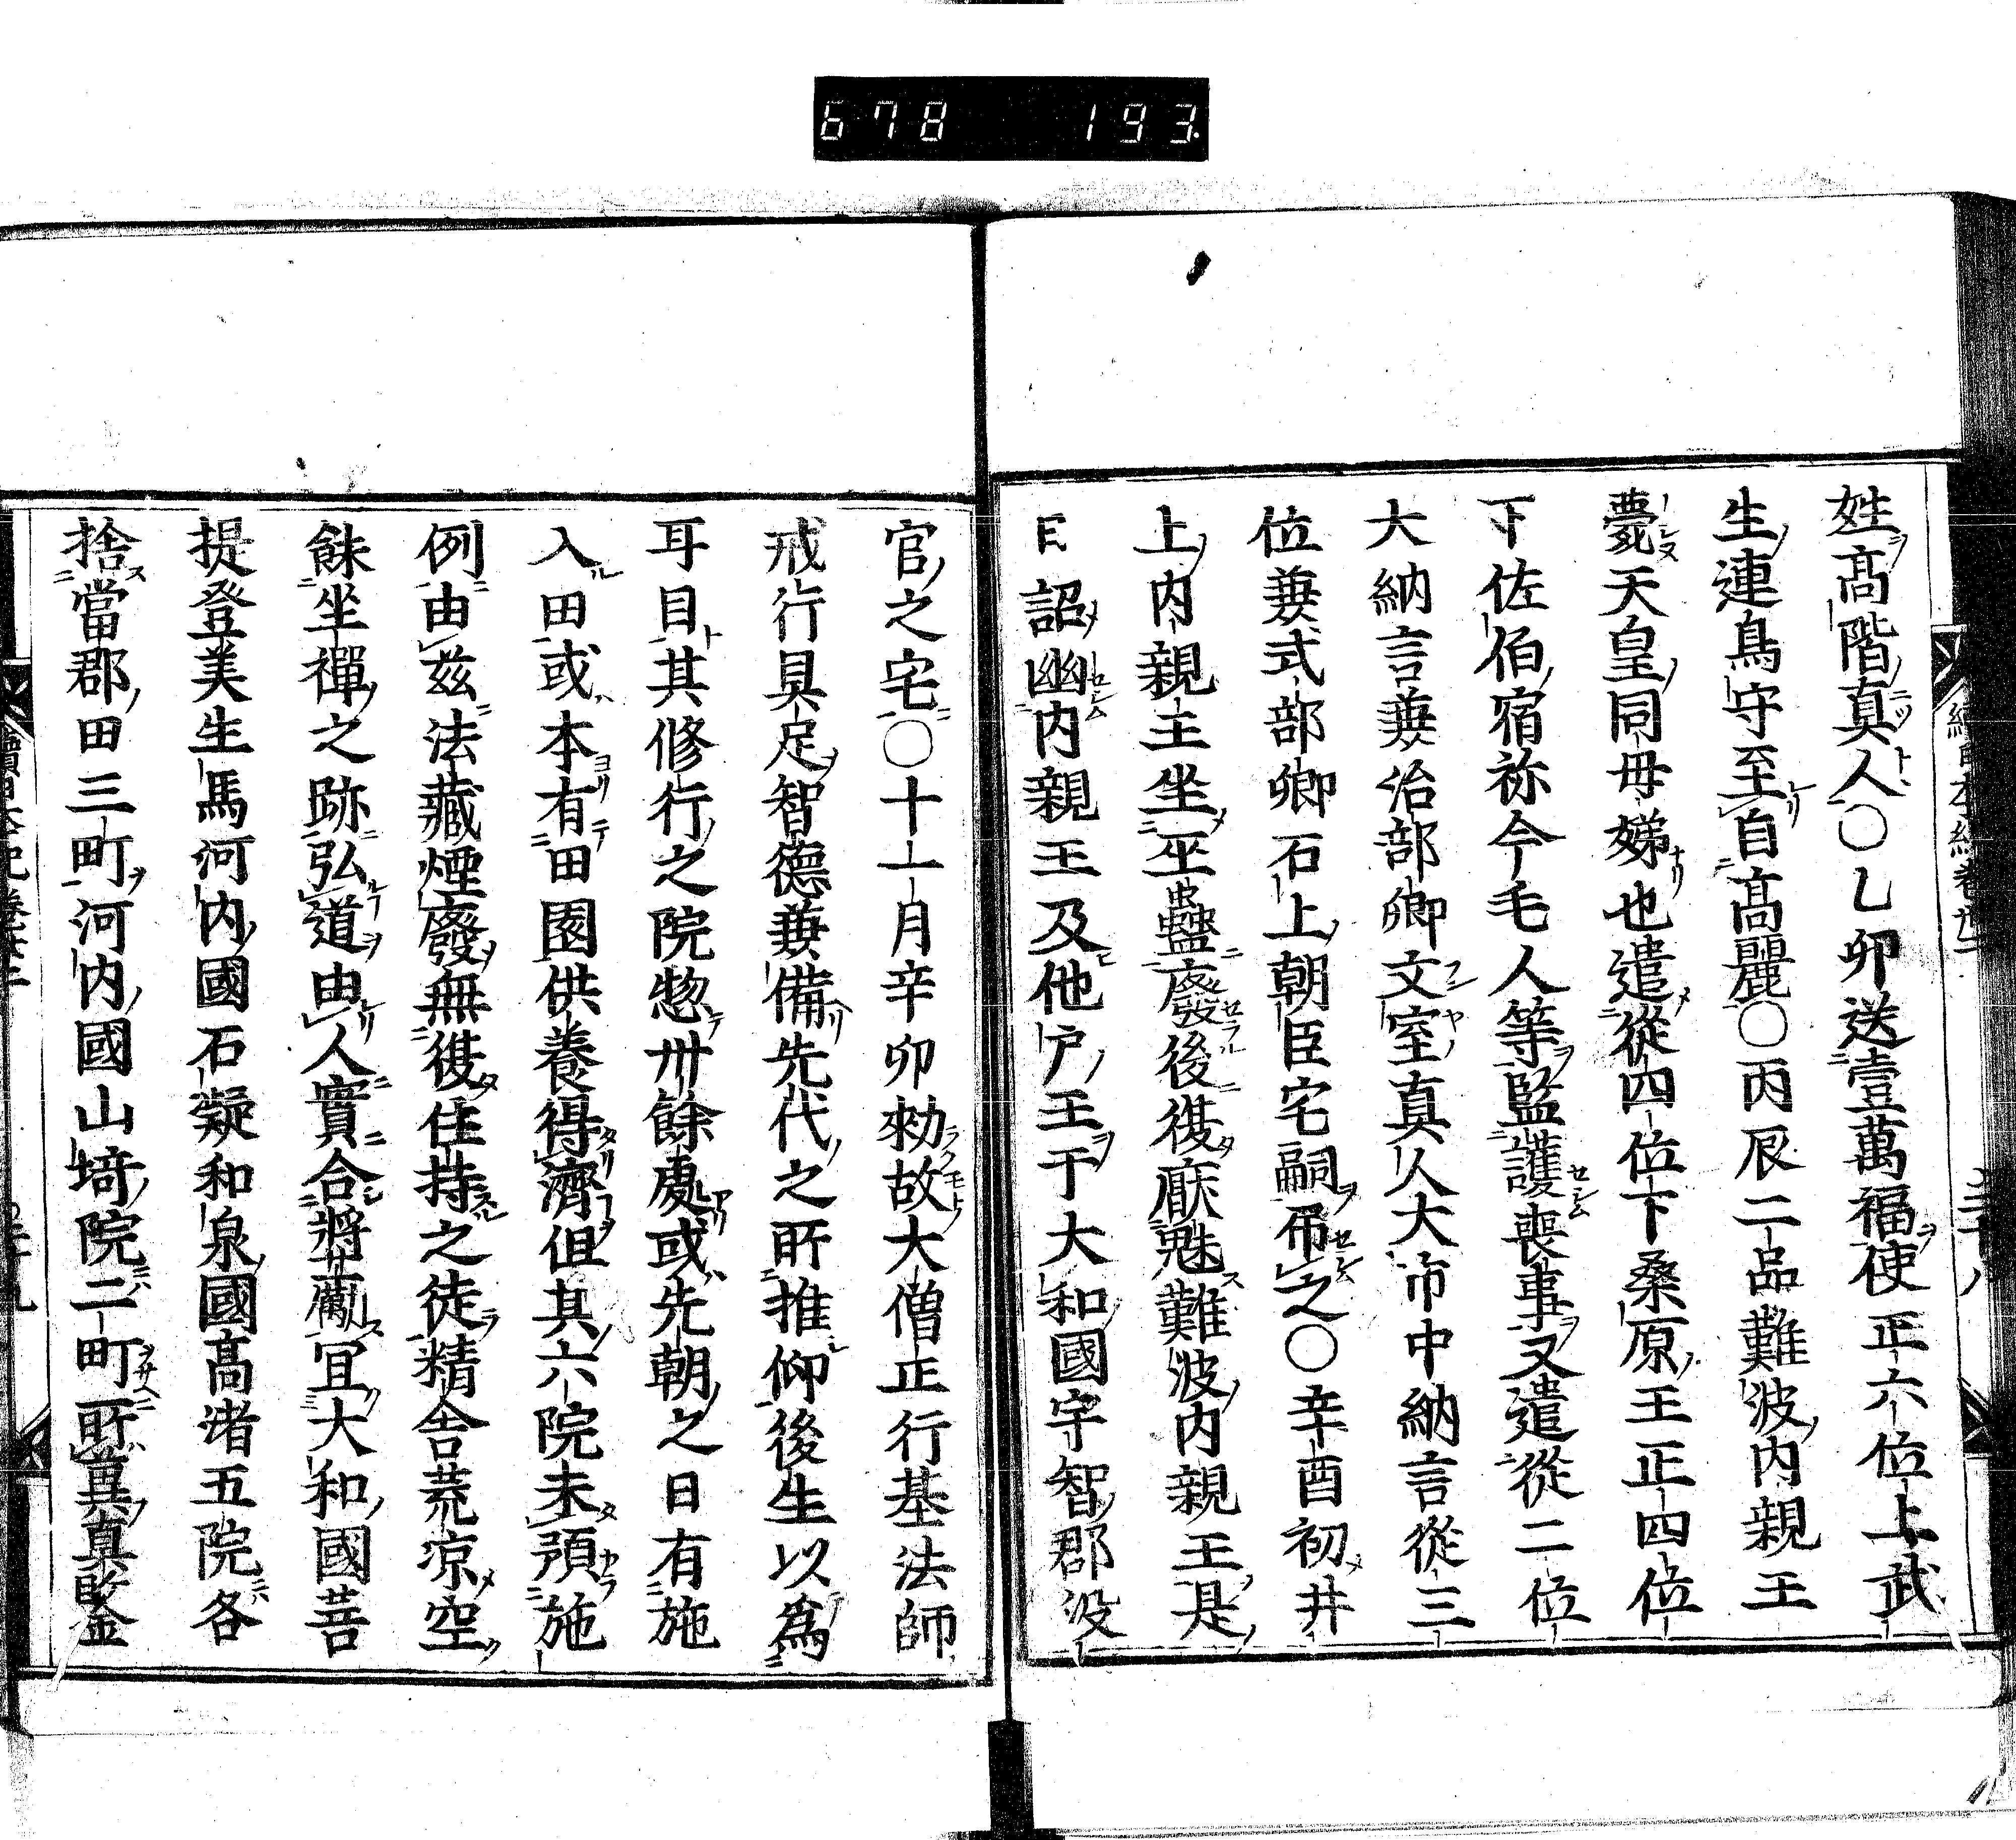 678 193
姓髙階真人○乙卯送壹萬福使正六位上武
生連鳥守至自髙麗○丙辰二品難波内親王
薨天皇同母娣也遣從四位下桑原王正四位
下佐伯宿祢今毛人等監護喪事又遣從二位
大納言兼治部卿文室真人大市中納言從三
位兼式部卿石上朝臣宅嗣吊之○辛酉初井
上内親王坐巫蠱廢後復厭魅難波内親王是
日詔幽内親王及他戸王于大和國宇智郡没
官之宅○十一月辛卯勅故大僧正行基法師
戒行具足智德兼備先代之所推仰後生以為
耳目其修行之院惣卅餘處或先朝之日有施
入田或本有田園供養得濟但其六院未預施
例由茲法藏煙廢無復住持之徒精舎荒凉空
餘坐禪之跡弘道由人實合將勵宜大和國菩
提登美生馬河内國石凝和泉國髙渚五院各
捨當郡田三町河内國山埼院二町所冀真𨥥